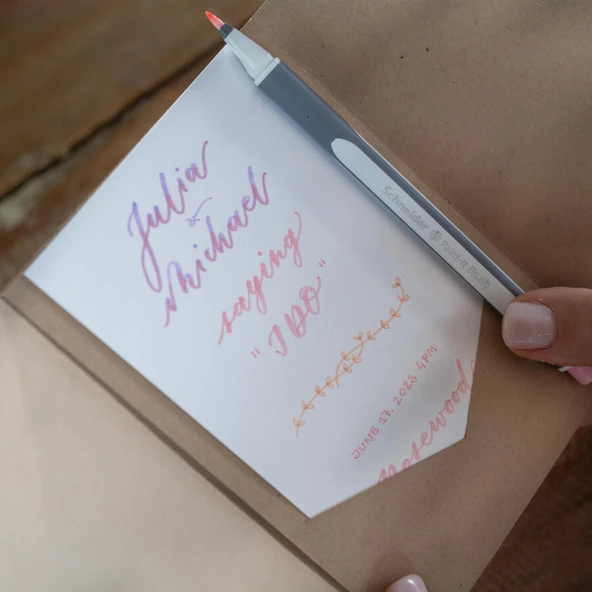 Julia
&
Michael
saying
"I DO"
JUNE 17. 2025 4PM
Rosewood
Schneider Paint-It Brush